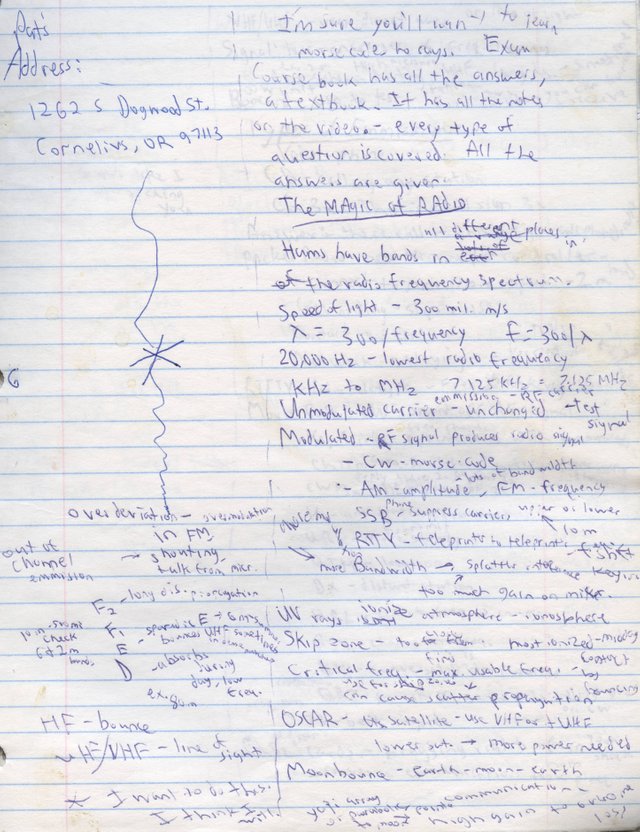 Pat's
Address:
1262 S Dogwood St.
Cornelius, OR 97113
I'm sure you'll want to learn
morse code to rays. Exam
Course book has all the answers,
a textbook. It has all the notes
on the video - every type of
question is covered. All the
answers are given.
The MAgic of RADio
all different places
Hams have bands in
of the radio frequency spectrum.
Speed of light - 300 mil. m/s
λ = 300/frequency f = 300/λ
20,000 Hz - lowest radio frequency
KHz to MHz 7,125 KHz = 7.125 MHz
emission - RF carrier
Unmodulated carrier - unchanged - test
signal
Modulated - RF signal produces radio signal
- CW - morse code
- lots of bandwidth
- Am - amplitude, FM - frequency
phone
SSB - suppress carrier, upper or lower
10m
RTTY - teleprints to teleprint
- f shift
more Bandwidth → splatter
too much gain on
UV rays ionize atmosphere - ionosphere
Skip zone - too most ionized - midday
Critical freq. - max. usable freq. -
can cause scatter propagation
OSCAR - use satellite - use VHF or UHF
lower sat. → more power needed
Moonbounce - earth-moon-earth
communication -
yagi array
high gain to
loss
6
overdeviation - overmodulation
in FM,
→ shouting,
talk from micr.
out of
channel
emmission
F2 - long dis. propagation
10m
check
6 & 2m
F1
E - sporadic E
- bounces VHF sometimes
D - absorbs
during
day, low
freq.
HF - bounce
UHF/VHF - line of
sight
* I want to do this.
I think I will